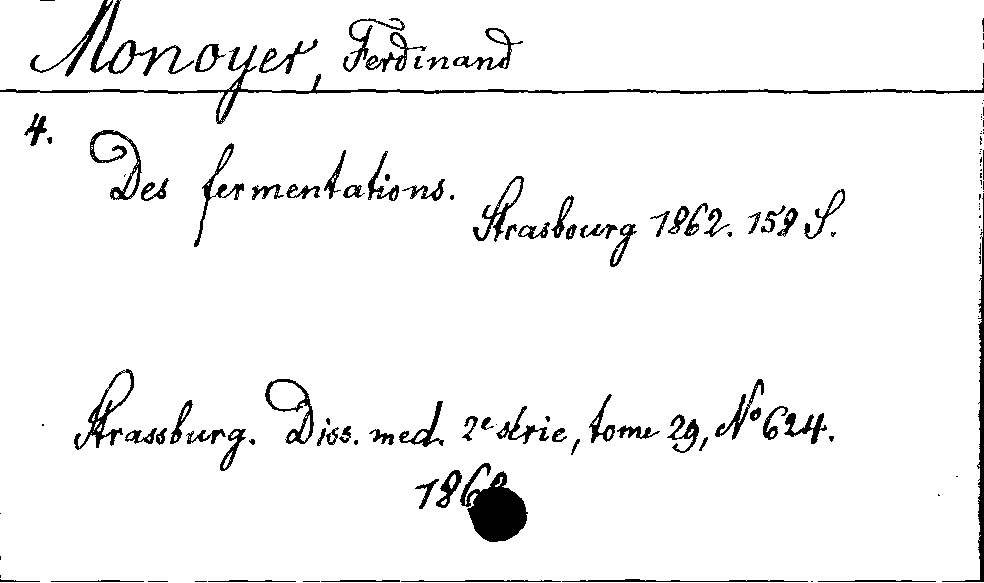 Monoyer, Ferdinand
4.
Des fermentations.
Strasbourg 1862. 158 S.
Strassburg. Diss. med. 2e série, tome 29, No 624.